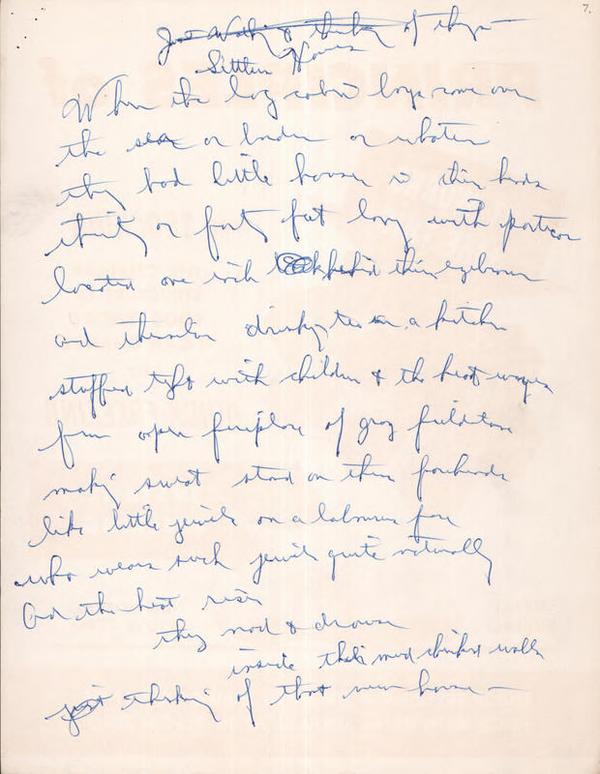 7.
of
Settlers House
When the log cabin boys come over
the sea or border or whatever
they had little houses in their heads
thirty or forty feet long with porticos
located one inch behind their eyebrows
and themselves drinking tea in a kitchen
stuffed tight with children & the heat waves
from open fireplace of gray fieldstone
making sweat stand on their foreheads
like little jewels on a labourer's face
who wears such jewels quite naturally
And the heat rises
they nod & drowse
inside their mud chinked walls
just thinking of that new house —